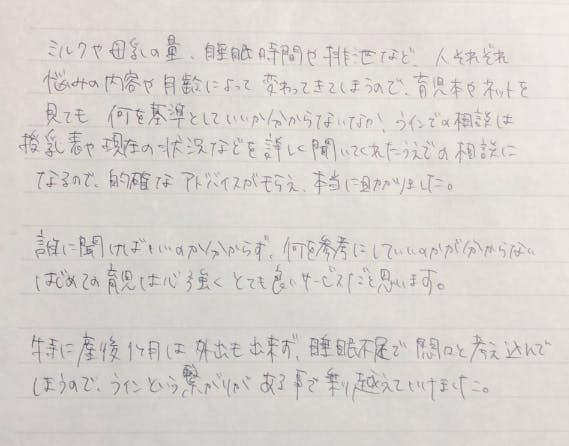 ミルクや母乳の量、睡眠時間や排泄など、人それぞれ
悩みの内容や月齢によって変わってきてしまうので、育児本やネットを
見ても何を基準としていいか分からないなか、ラインでの相談は
授乳表や現在の状況などを詳しく聞いてくれたうえでの相談に
なるので、的確なアドバイスがもらえ、本当に助かりました。
誰に聞けばいいのか分からず、何を参考にしていいのかが分からない
はじめての育児は心強くとても良いサービスだと思います。
特に産後1ヶ月は外出も出来ず、睡眠不足で悶々と考え込んで
しまうので、ラインという繋がりがある事で乗り越えていけました。